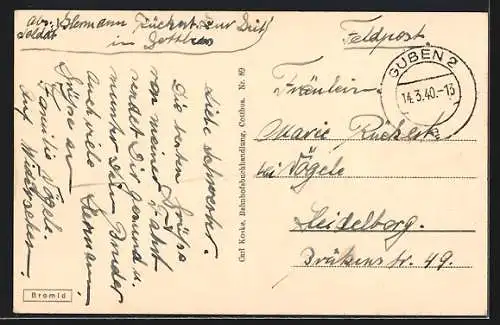 Abs. Soldat Hermann Rückert zur Zeit
in Cottbus
Feldpost.
GUBEN 2
14.3.40.-13
a
Fräulein
Marie Rückert
bei Vögele
Heidelberg.
Bräken str. 49.
Liebe Schwester.
Die besten Grüße
von meiner Fahrt
sendet Dir gesund u.
munter Dein Bruder
Hermann.
Auch viele
Grüße an
Familie Vögele.
Auf Wiedersehen!
Carl Koske, Bahnhofsbuchhandlung, Cottbus. Nr. 89
Bromid